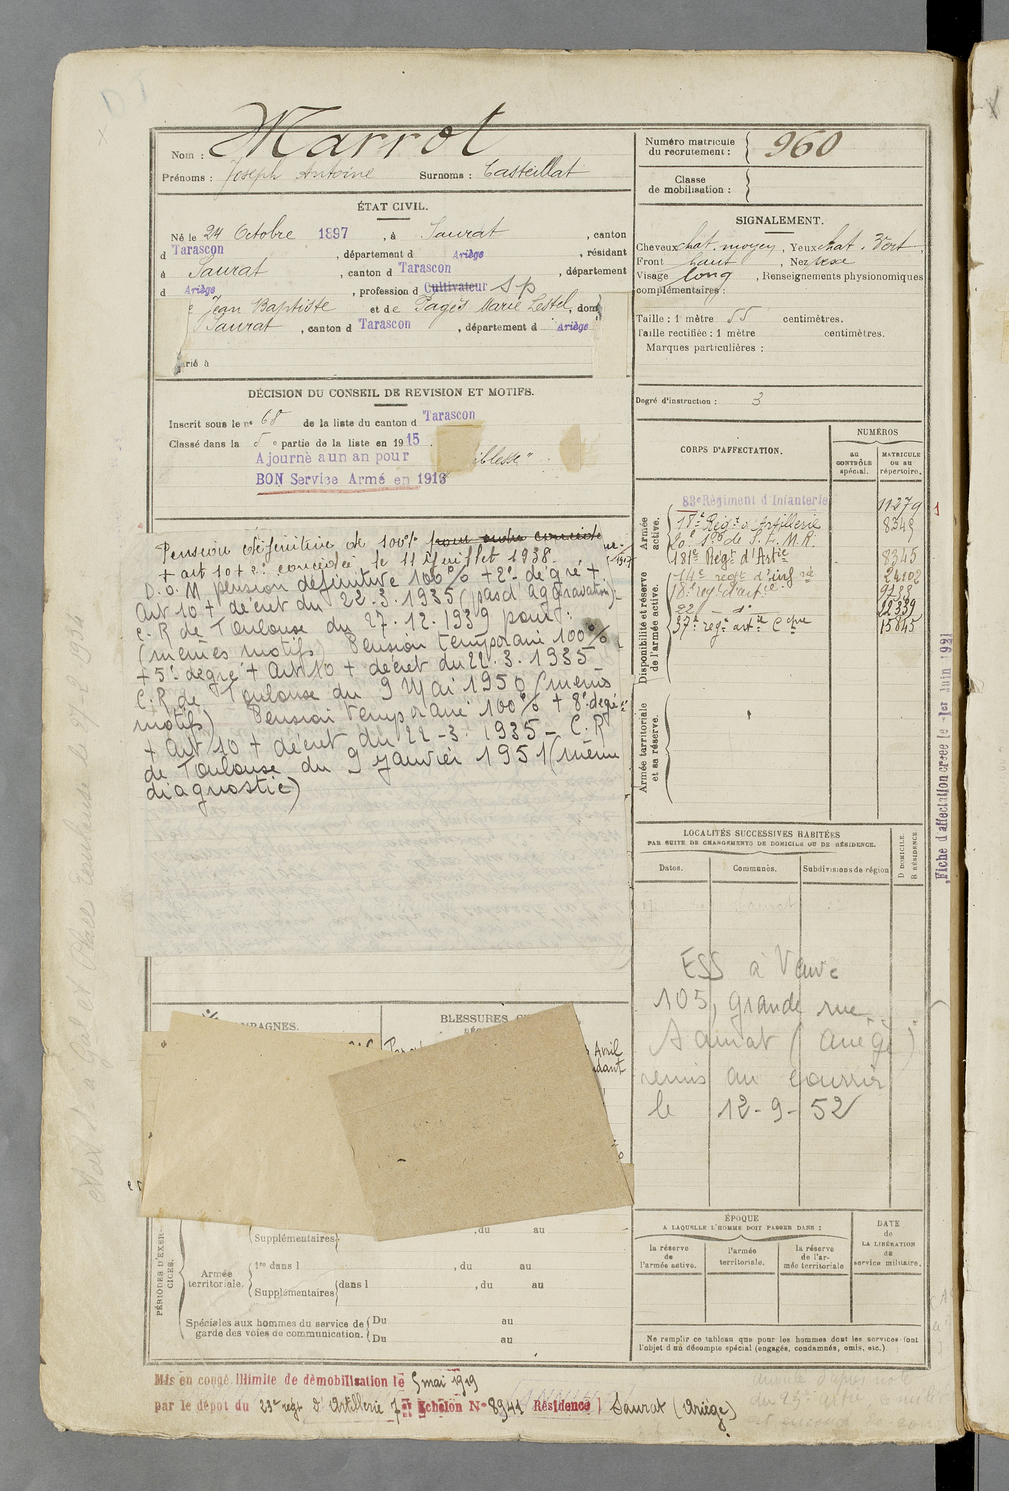 Nom : Marrot
Prénoms : Joseph Antoine Surnoms : Casteillat
ÉTAT CIVIL.
Né le 24 Octobre 1897, à Saurat, canton
d Tarascon, département d Ariège, résidant
à Saurat, canton d Tarascon, département
d Ariège, profession d Cultivateur S p
Jean Baptiste et de Pagès Marie Lestel, dom
Saurat, canton d Tarascon, département d Ariège
arié à
DÉCISION DU CONSEIL DE REVISION ET MOTIFS.
Inscrit sous le n° 68 de la liste du canton d Tarascon
Classé dans la 5 e partie de la liste en 1915.
Ajourné a un an pour iblesse"
BON Service Armé en 1916
Pension définitive de 100% pour autre concédée
+ art 10 + 2° concédée le 11 Juillet 1938.
D.O.M pension définitive 100% + 2° degré +
Art 10 + décret du 22.3.1935 (pas d'aggravation)-
C.R de Toulouse du 27.12.1939 pour :
(mêmes motifs) Pension temporaire 100%
+ 5° degré + Art 10 + décret du 22.3.1935-
C.R de Toulouse du 9 Mai 1950 (mêmes
motifs) Pension temporaire 100% + 8° degré
+ Art 10 + décret du 22-3 1935 - C.R
de Toulouse du 9 Janvier 1951 (même
diagnostic)
PAGNES.
BLESSURES, C
Avril
dant
PÉRIODES D'EXERCICES.
Supplémentaires , du au
Armée territoriale. 1re dans l , du au
Supplémentaires dans l , du au
Spéciales aux hommes du service de garde des voies de communication. Du au
Du au
Mis en congé illimité de démobilisation le 5 mai 1919
par le dépot du 23e régt d'Artillerie 7 e Echelon N° 8941 Résidence Saurat (Ariège)
Numéro matricule du recrutement : 960
Classe de mobilisation :
SIGNALEMENT.
Cheveux chat. moyen, Yeux chat. Vert
Front haut, Nez
Visage long, Renseignements physionomiques
complémentaires :
Taille : 1 mètre 55 centimètres.
Taille rectifiée : 1 mètre centimètres.
Marques particulières :
Degré d'instruction : 3
CORPS D'AFFECTATION.
NUMÉROS
AU CONTRÔLE spécial.
MATRICULE OU AU répertoire.
Armée active.
83e Régiment d'Infanterie 11279
18e Régt d'Artillerie 8348
20e de S.E.M.R.
181e Régt d'Artie 8345
Disponibilité et réserve de l'armée active.
14e régt d'inf 24102
18e régt d'artie 9188
22 d° 22339
37e régt artie 15845
Armée territoriale et sa réserve.
LOCALITÉS SUCCESSIVES HABITÉES
PAR SUITE DE CHANGEMENTS DE DOMICILE OU DE RÉSIDENCE.
D DOMICILE.
R RÉSIDENCE.
Dates. Communes. Subdivisions de région
ESS à Veuve
105, Grande rue
Saurat (Ariège)
remis au courrier
le 12-9-52
ÉPOQUE
A LAQUELLE L'HOMME DOIT PASSER DANS :
DATE de LA LIBÉRATION du service militaire.
la réserve de l'armée active.
l'armée territoriale.
la réserve de l'armée territoriale
Ne remplir ce tableau que pour les hommes dont les services font
l'objet d'un décompte spécial (engagés, condamnés, omis, etc.)
Fiche d'affectation créée le 1er Juin 1931